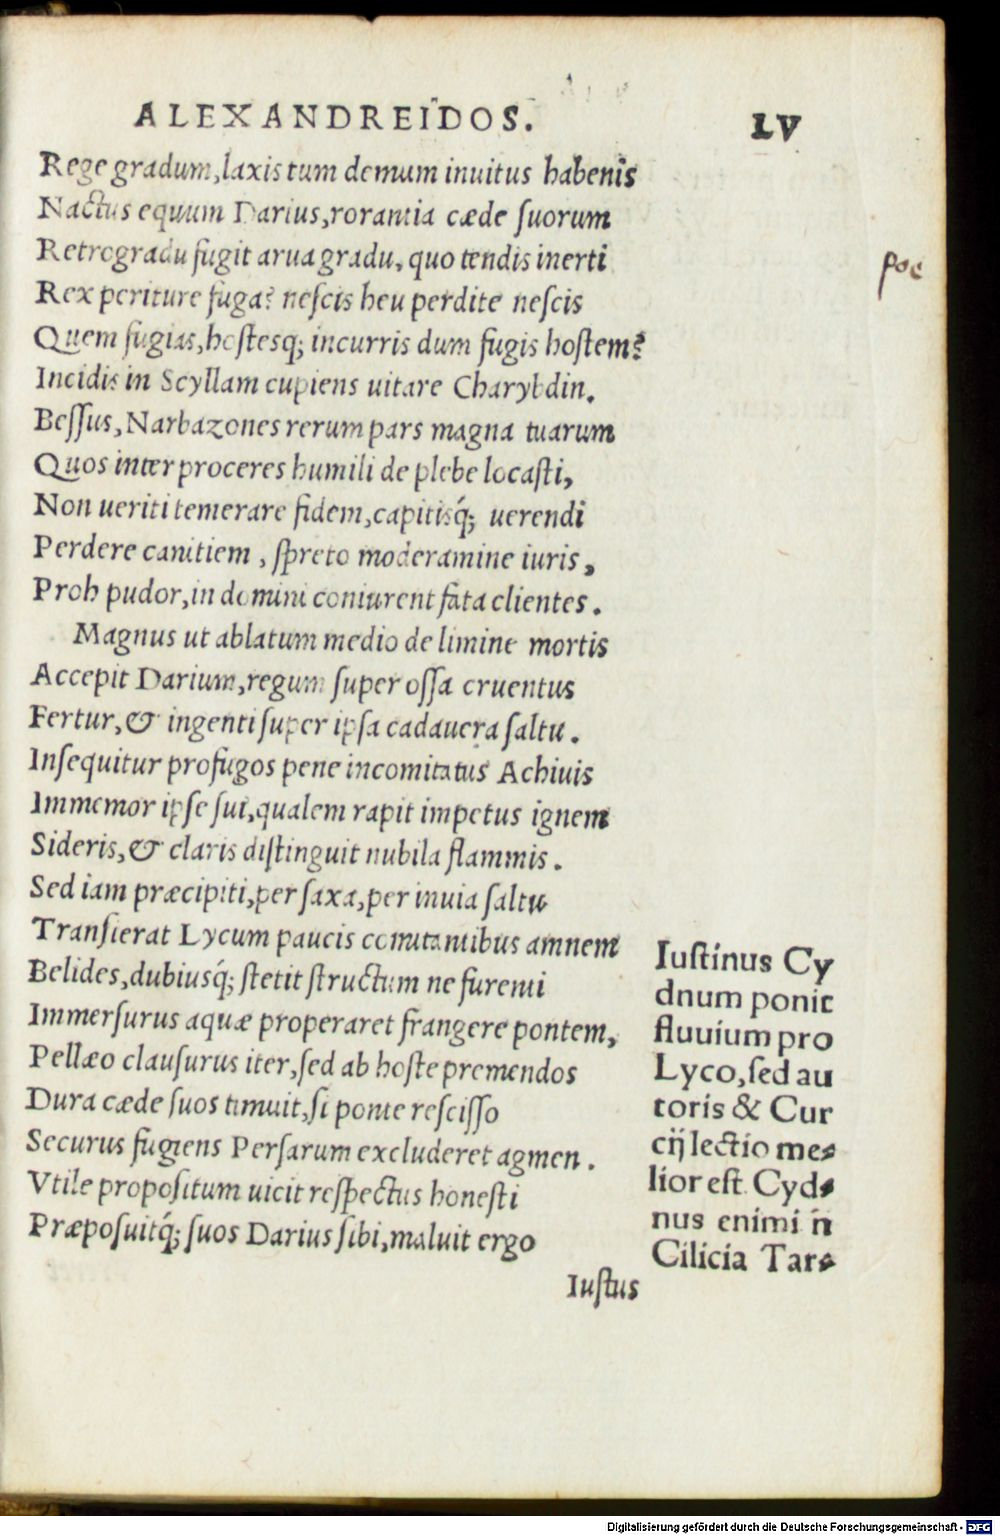 ALEXANDREIDOS.
LV
Rege gradum, laxis tum demum inuitus habenis
Nactus equum Darius, rorantia cæde ſuorum
Retrogradu fugit arua gradu, quo tendis inerti
Rex periture fuga? neſcis heu perdite neſcis
Quem fugias, hoſtesq; incurris dum fugis hoſtem?
Incidis in Scyllam cupiens uitare Charybdin.
Beſſus, Narbazones rerum pars magna tuarum
Quos inter proceres humili de plebe locaſti,
Non ueriti temerare fidem, capitisq́; uerendi
Perdere canitiem, ſpreto moderamine iuris,
Proh pudor, in domini coniurent fata clientes.
Magnus ut ablatum medio de limine mortis
Accepit Darium, regum ſuper oſſa cruentus
Fertur, & ingenti ſuper ipſa cadauera ſaltu.
Inſequitur profugos pene incomitatus Achiuis
Immemor ipſe ſui, qualem rapit impetus ignem
Sideris, & claris diſtinguit nubila flammis.
Sed iam præcipiti, per ſaxa, per inuia ſaltu
Tranſierat Lycum paucis comitantibus amnem
Belides, dubiusq́; ſtetit ſtructum ne furenti
Immerſurus aquæ properaret frangere pontem,
Pellæo clauſurus iter, ſed ab hoſte premendos
Dura cæde ſuos timuit, ſi ponte reſciſſo
Securus fugiens Perſarum excluderet agmen.
Vtile propoſitum uicit reſpectus honeſti
Præpoſuitq́; ſuos Darius ſibi, maluit ergo
Iuſtus
poe
Iuſtinus Cy
dnum ponit
fluuium pro
Lyco, ſed au
toris & Cur
cij lectio me⸗
lior eſt Cyd⸗
nus enim i n̄
Cilicia Tar⸗
Digitalisierung gefördert durch die Deutsche Forschungsgemeinschaft - DFG